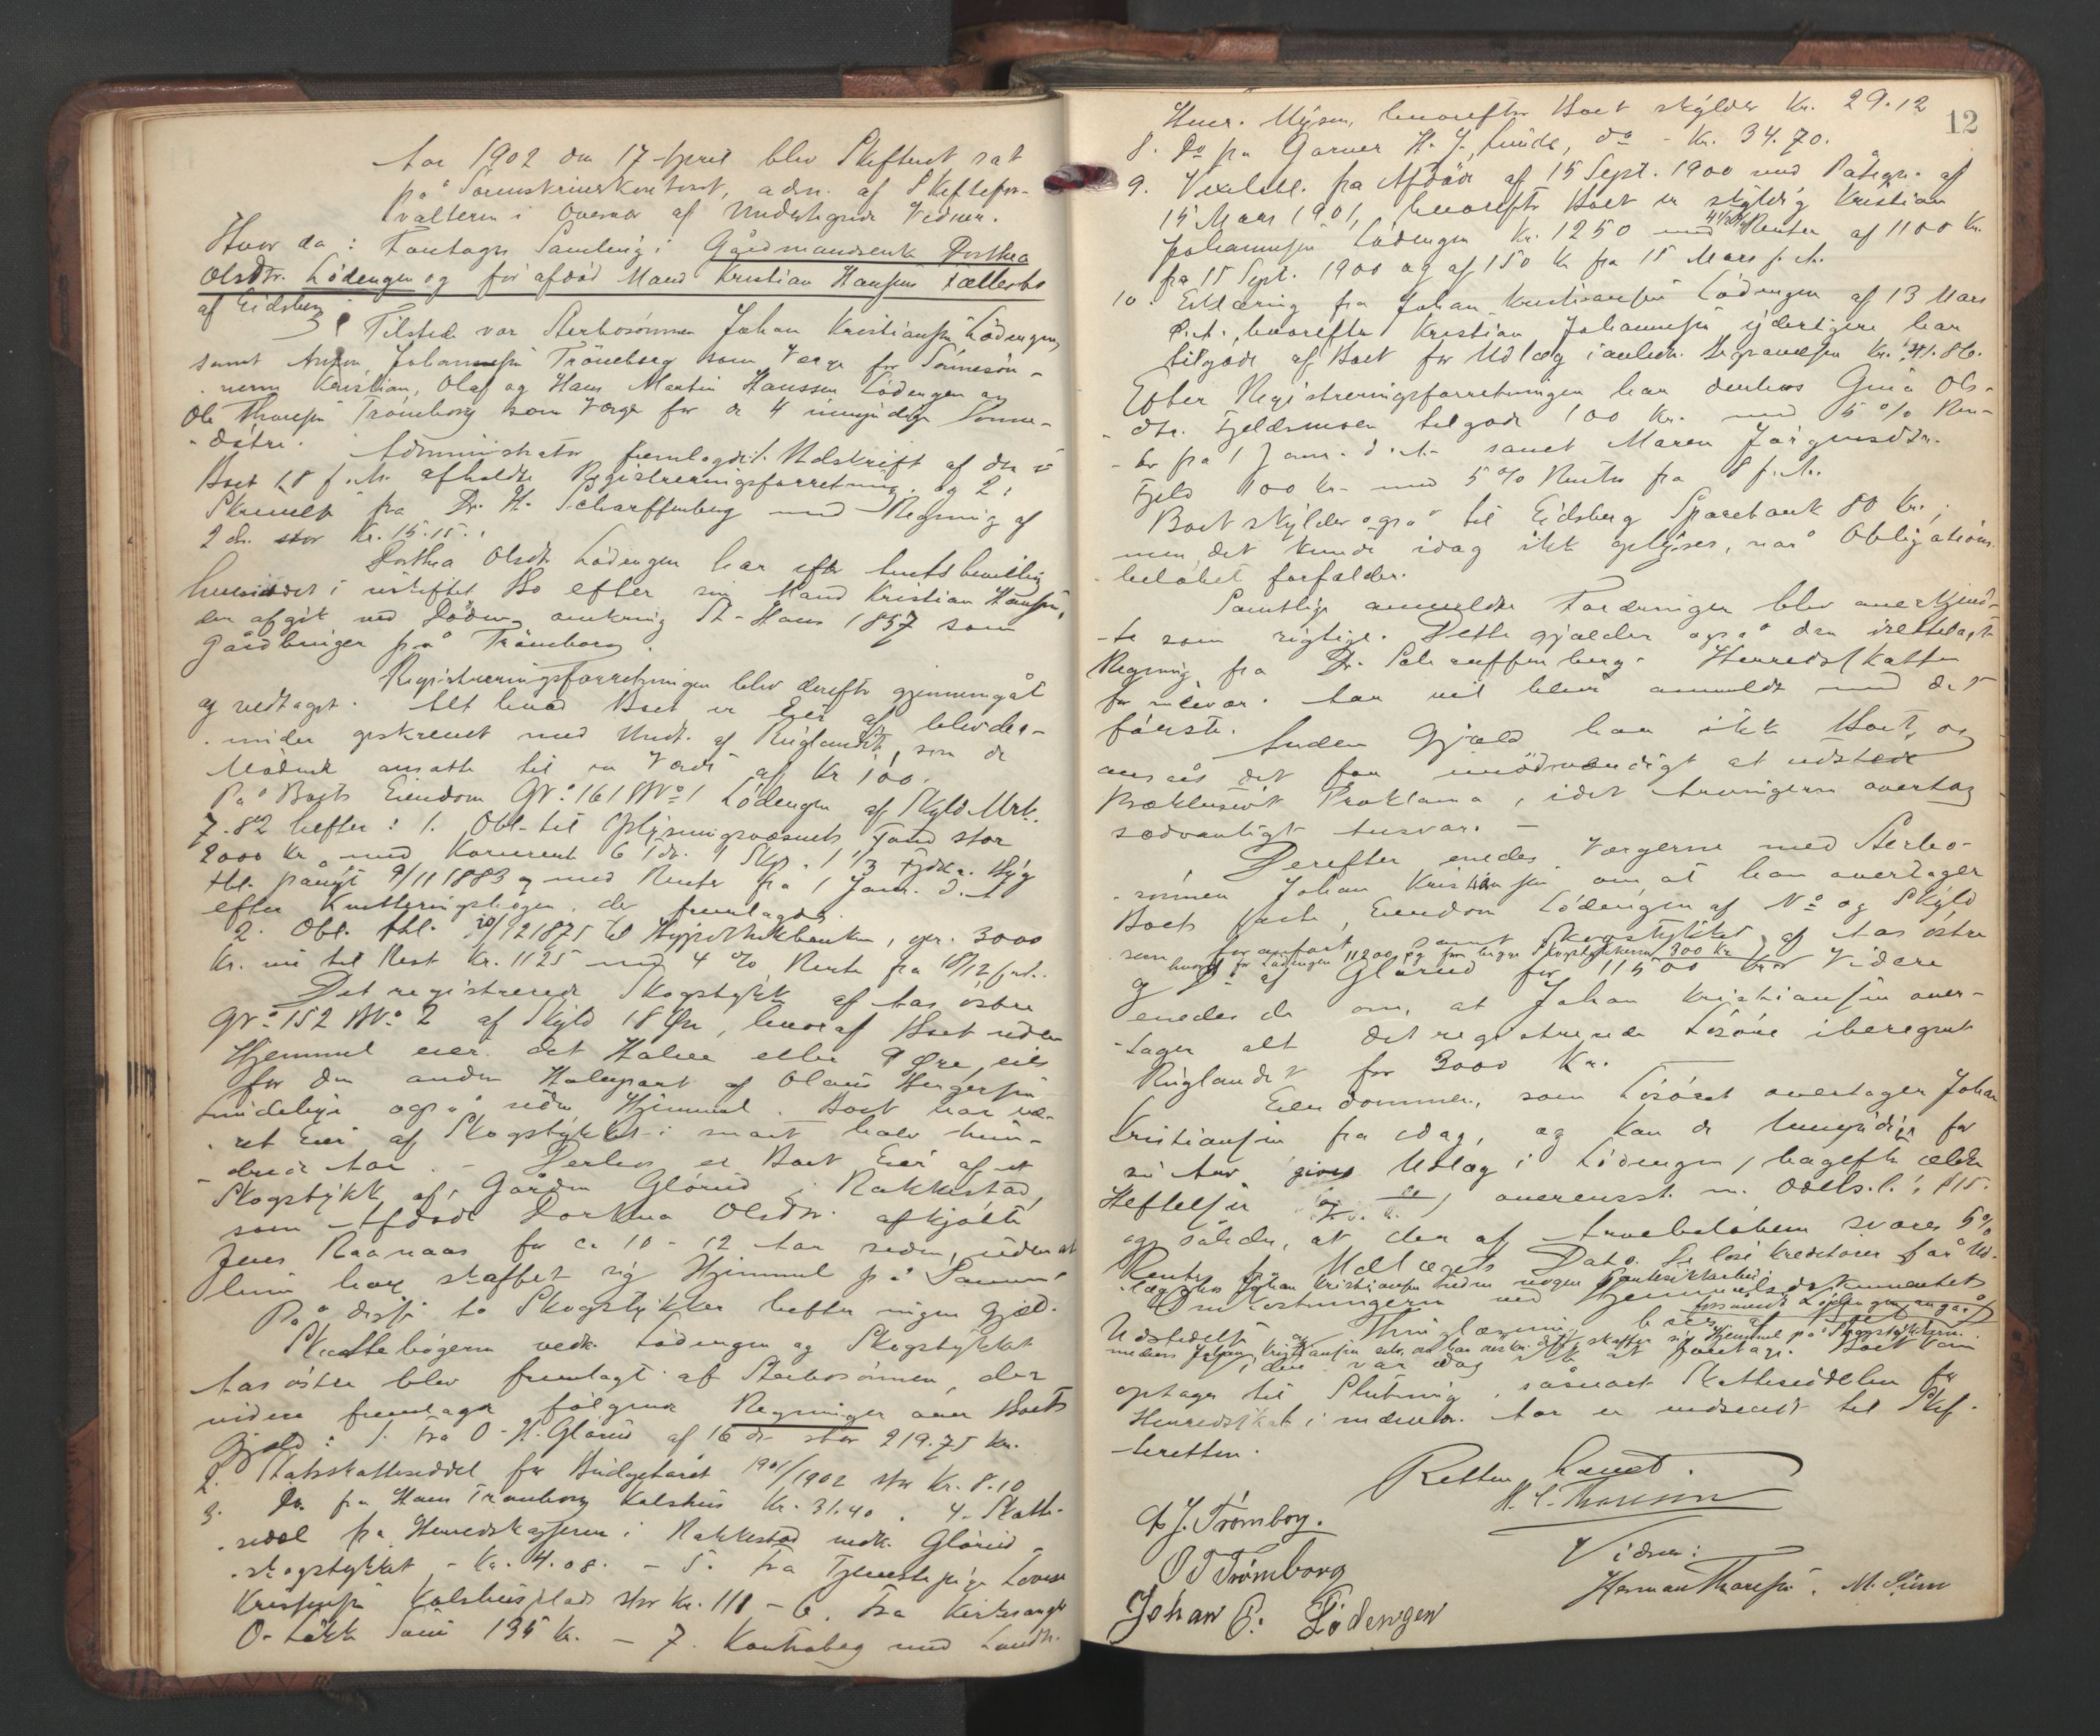 Aar 1902 den 17 April blev Skifteret sat
på Sorenskriverkontoret, adm. af Skiftefor-
valteren i Overvær af undertegnede Vidner.
Hvor da: Foretages Samling i Gårdmandsenke Dorthea
Olsdtr. Lödengen og för afdöd Mand Kristian Hansens Fællesbo
af Eidsberg
Tilstede var Sterbosönnen Johan Kristiansen Lödengen,
samt Anton Johannesen Trömborg som Verge for Sönnesön-
nerne Kristian, Olaf og Hans Martin Hanssen Lödengen og
Ole Thoresen Trömborg som Verge for de 4 umyndige Sönne-
dötre. Administrator fremlagde 1. Udskrift af den i
Boet 18 f. M. afholdte Registreringsforretning og 2:
Skrivelse fra Dr. H. Scharffenberg med Regning af
2 ds. stor Kr. 15.15.
Dorthea Olsdtr. Lödengen har efter Amtsbevilling
hensiddet i uskiftet Bo efter sin Mand Kristian Hansen,
der afgik ved Döden omkring St. Hans 1857 som
Gårdbruger på Trömborg.
Registreringsforretningen blev derefter gjennemgåt
og vedtaget. Alt hvad Boet er Eier af blev der-
under opskrevet med Undt. af Ruglandet, som de
Mödende ansatte til en Værdi af Kr 100.
På Boets Eiendom Gr: No 161 Br No 1 Lödengen af Skyld Mrk.
7.82 hefter: 1. Obl. til Oplysningsvæsenets Fond stor
2000 Kr. med Kornrente 6 Tdr. 1 Skp. 1 1/3 Fjdkr. Byg
thl. pangt 9/11 1883 og med Renter fra 1 Janr. d. A
efter Kvitteringsbogen, der fremlagdes.
2. Obl. thl. 10/12 1875 til Hypothekbanken, opr. 3000
Kr. nu til Rest Kr. 1125 med 4 % Rente fra 18/12 f. A.
Det registrerede Skogstykke af Aas östre
Gr No 152 Br No 2 af Skyld 18 Öre, hvoraf Boet uden
Hjemmel eier det Halve eller 9 Öre, eies
for den anden Halvpart af Olaus Hergersen
Lundeby også uden Hjemmel. Boet har væ-
ret Eier af Skogstykket i snart halv hun-
drede Aar. - Derhos er Boet Eier af et
Skogstykke af Gården Glörud i Rakkestad,
som Afdöde Dorthea Olsdtr. afkjöbte
Jens Raanaas for ca 10 - 12 Aar siden, uden at
hun har skaffet sig Hjemmel på Samme.
På disse to Skogstykker hefter ingen Gjæld.
Skattebögerne vedk. Lödengen og Skogstykket
Aas östre blev fremlagt af Sterbosönnen, der
videre fremlagde fölgende Regninger over Boets
Gjæld: 1. Fra O. H. Glörud af 16 ds. stor 219.75 Kr.
2. Statsskatteseddel for Budgetåret 1901/1902 stor Kr. 8.10
3. Do fra Hans Trömborg Kalshus Kr. 31.40. 4. Skatte-
seddel fra Herredskassereren i Rakkestad vedk. Glörud
skogstykket - Kr. 4.08. - 5. Fra Tjenestepige Lovise
Kristensen Kalshusplads stor Kr. 111 - 6. Fra Kirkesanger
O. Lökke Som 135 Kr. - 7. Kontrabog med Landh.
12
Henr. Mysen, hvorefter Boet skylder Kr. 29.12
8. Do fra Garver H. J. Lunde, do - Kr. 34.70.
9. Vexelobl. fra Afdöde af 15 Sept. 1900 med Påtegn. af
15 Mars 1901, hvorefter Boet er skyldig Kristian
Johannesen Lödengen Kr. 1250 med 4½ % Renter af 1100 Kr.
fra 15 Sept. 1900 og af 150 Kr fra 15 Mars f. A.
10 Erklæring fra Johan Kristiansen Lödengen af 13 Mars
d. A., hvorefter Kristian Johannesen yderligere har
tilgode af Boet for Udlæg i anledn. Begravelsen Kr. 41.86.
Efter Registreringsforretningen har derhos Guri Ols-
dtr. Fjeldsmoen tilgode 100 Kr. med 5 % Ren-
ter fra 1 Janr. d. A. samt Maren Jörgensdtr.
Fjeld 100 Kr. med 5 % Renter fra 8 f. M.
Boet skylder også til Eidsberg Sparebank 80 Kr.;
men det kunde idag ikke oplyses, når Obligations-
belöbet forfalder.
Samtlige anmeldte Fordringer blev anerkjend-
te som rigtige. Dette gjælder også den irettelagte
Regning fra Dr. Scharffenberg. Herredskatten
for indevær. Aar vil blive anmeldt med det
förste.
Anden Gjæld har ikke Boet, og
ansaes det for unödvendigt at udstede
Præklusivt Proklama, idet Arvingerne overtog
sedvanligt Ansvar. -
Derefter enedes Vergerne med Sterbo-
sönnen Johan Kristiansen om at han overtager
Boets faste Eiendom Lödengen af No og Skyld
som för anfört samt Skogstykket af Aas östre
hvoraf for Lödengen 11200 og for begge Skogstykkerne 300 Kr
og Do af Glörud for 11500 Kr Videre
enedes de om, at Johan Kristiansen over-
tager alt det registrerede Lösöre iberegnet
Ruglandet for 3000 Kr.
Eiendommen, som Lösöret overtager Johan
Kristiansen fra idag, og kan de Umyndige for
sin Arv gives Udlæg i Lödengen, bagefter ældre
Heftelser overensst. m. Odels.l. § 15.
og således, at der af Arvebelöbene svares 5 %
Rente fra Udlægets Dato. De löse Kreditorer får Ud-
læg hos Johan Kristiansen uden nogen Pantesikkerhed.
Omkostningerne ved Hjemmelsdokumentets
forsåvidt Lödengen angår
Udstedelse og Thinglæsning bæres af Boet,
medens Johan Kristiansen selv, om han önsker det, skaffer sig Hjemmel på Skogstykkerne.
videre var idag ikke at foretage. Boet kan
optages til Slutning, såsnart Skatteseddelen for
Herredsskat i indevær. Aar er indsendt til Skif-
teretten.
Retten hævet.
H. C. Thoresen
A J. Trömborg.
O T Trömborg
Johan C. Lödengen
Vidner:
Herman Thoresen. M. Lunn